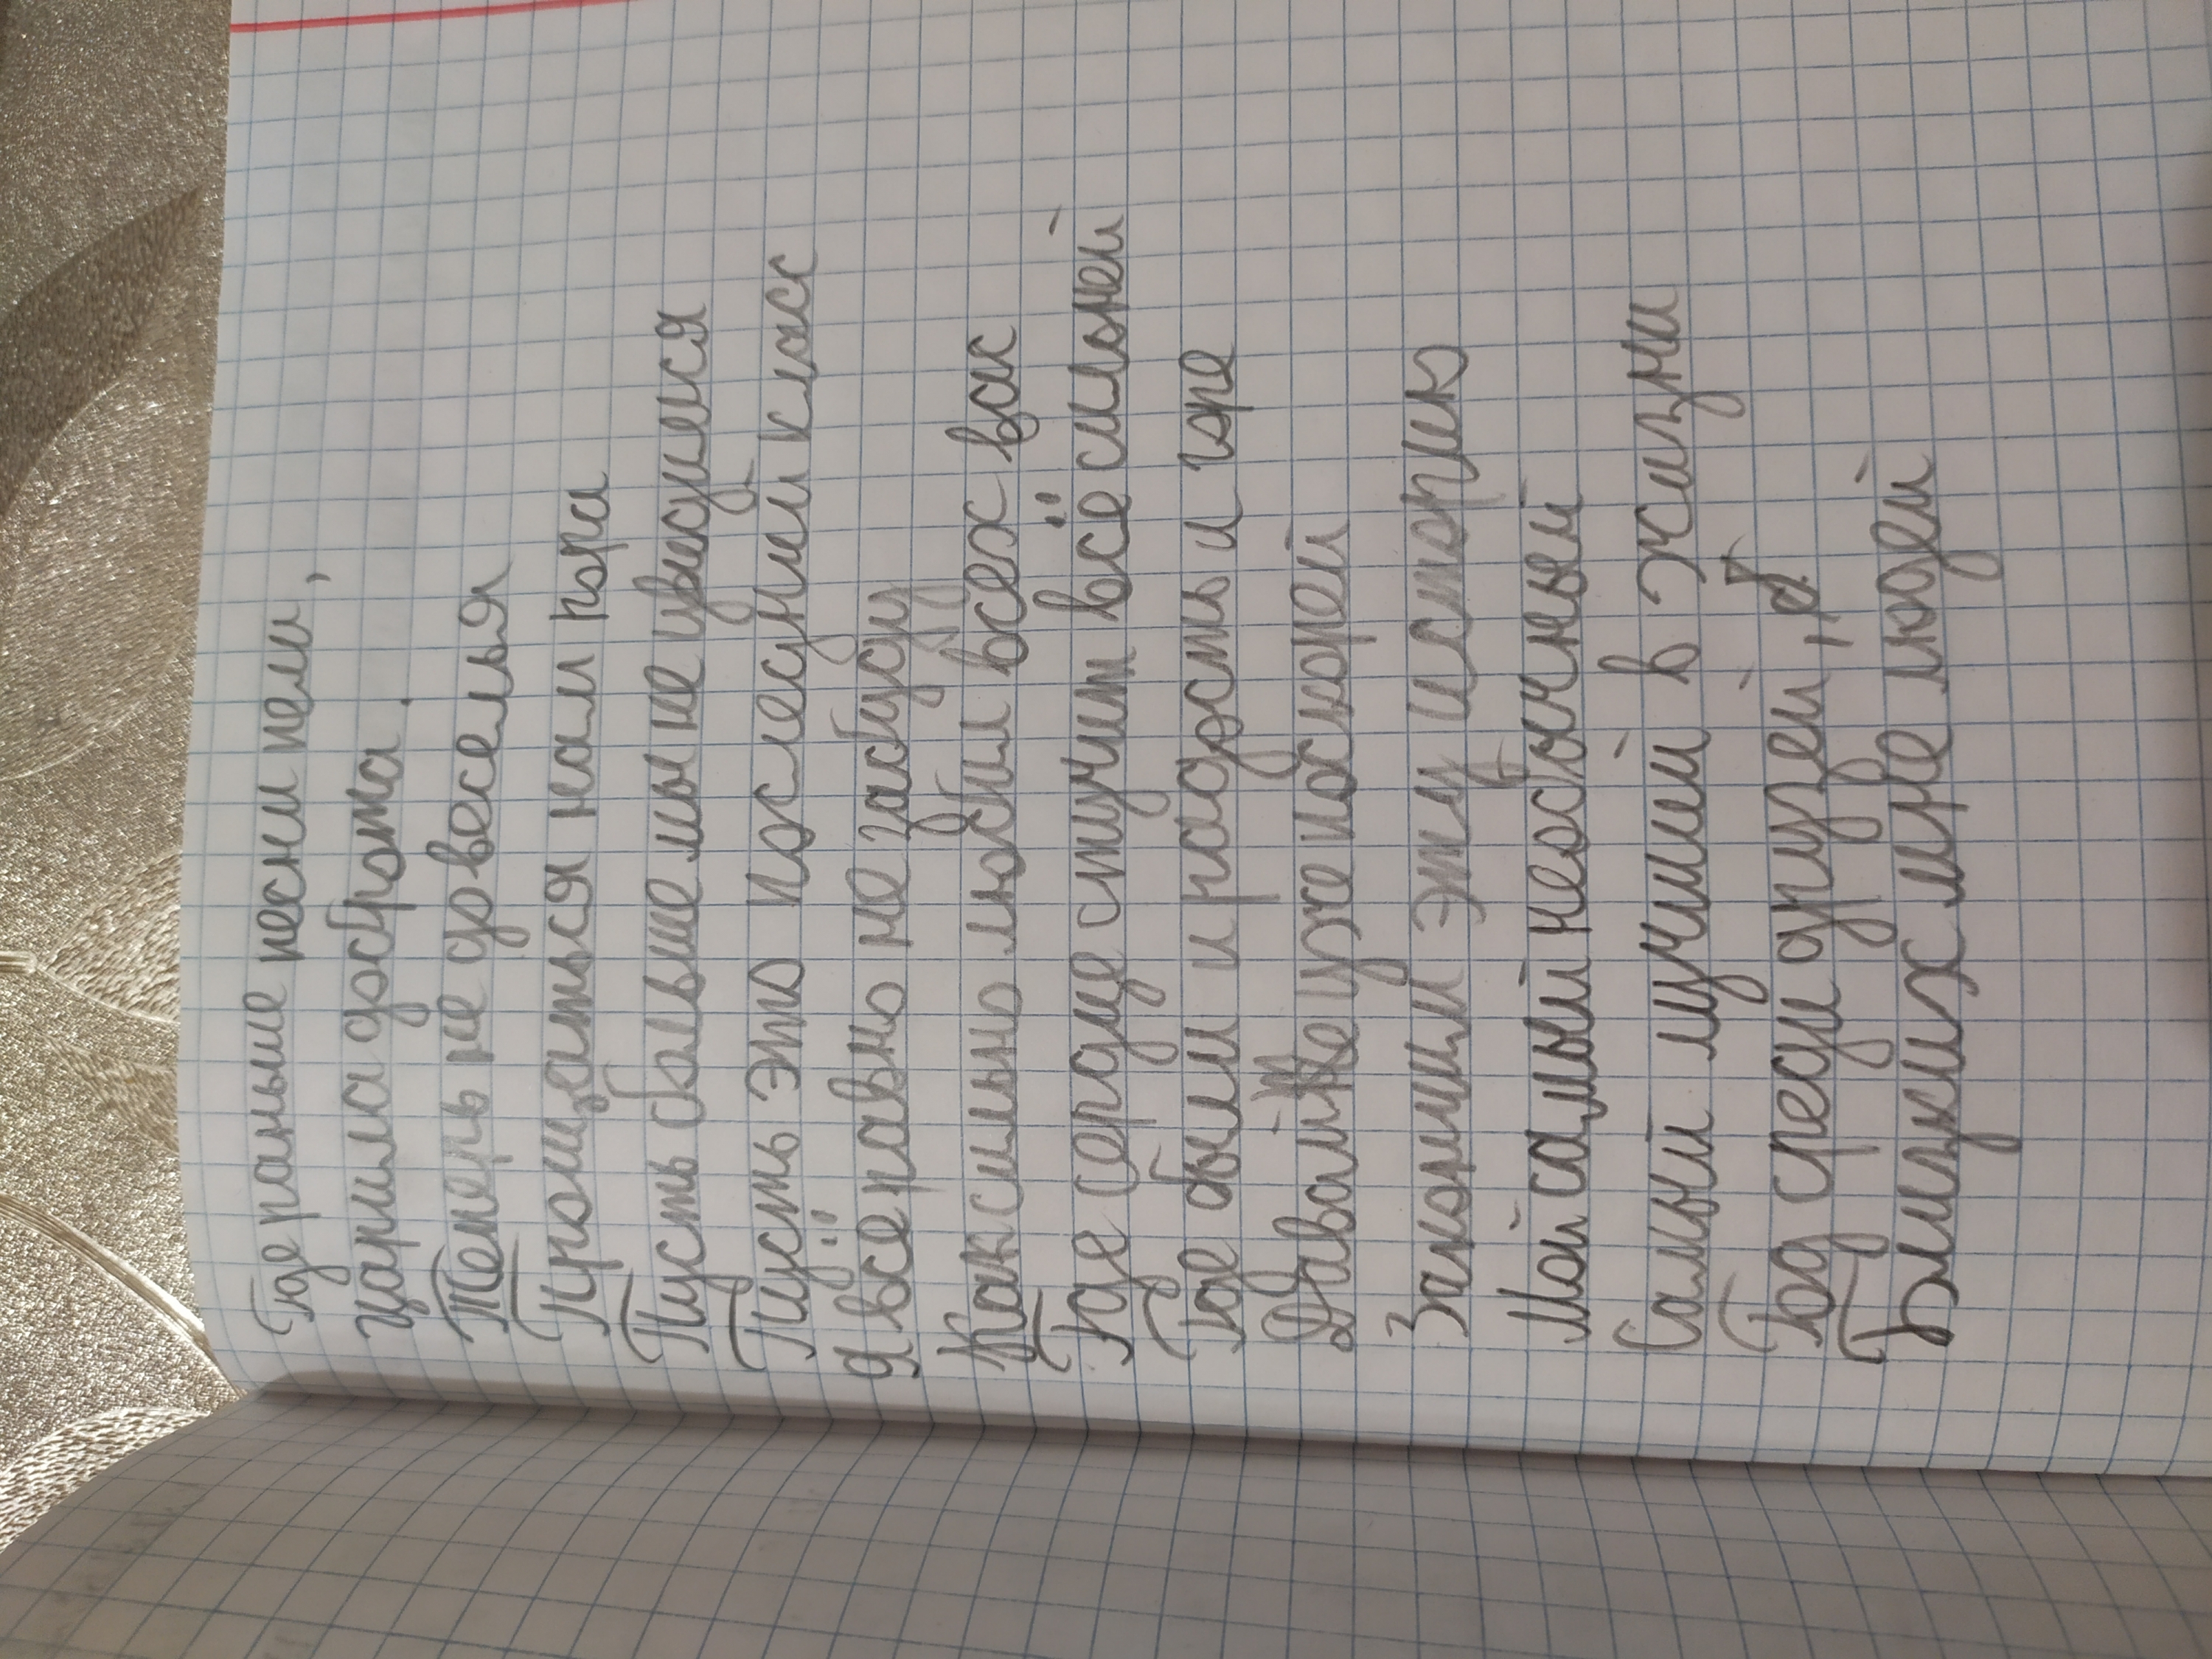 Где раньше песни пели,
царила доброта.
Теперь не до веселья
Прощаться нам пора
Пусть больше мы не увидимся
Пусть это последний класс
Я всё равно не забуду
Как сильно любил всех вас
Где сердце стучит всё сильней
Где были и радость и горе
Давайте уже поскорей
Закончим эту историю
Мой самый необычный
Самый лучший в жизни
Год среди друзей,
Близких мне людей